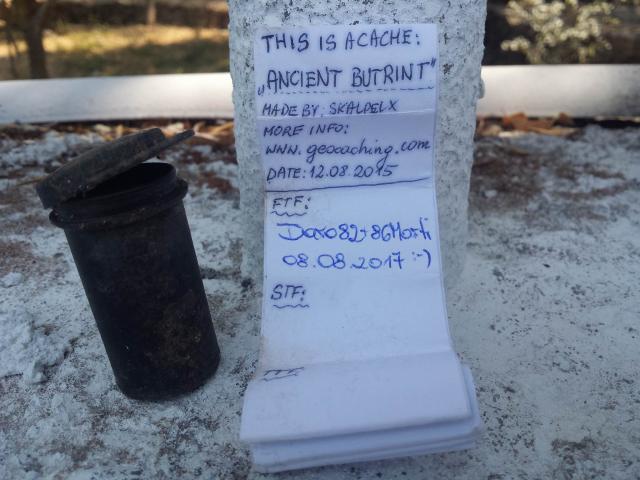 THIS IS A CACHE:
„ANCIENT BUTRINT"
MADE BY: SKALPELX
MORE INFO:
WWW.geocaching.com
DATE: 12.08.2015
FTF:
08.08.2017 :-)
STF: